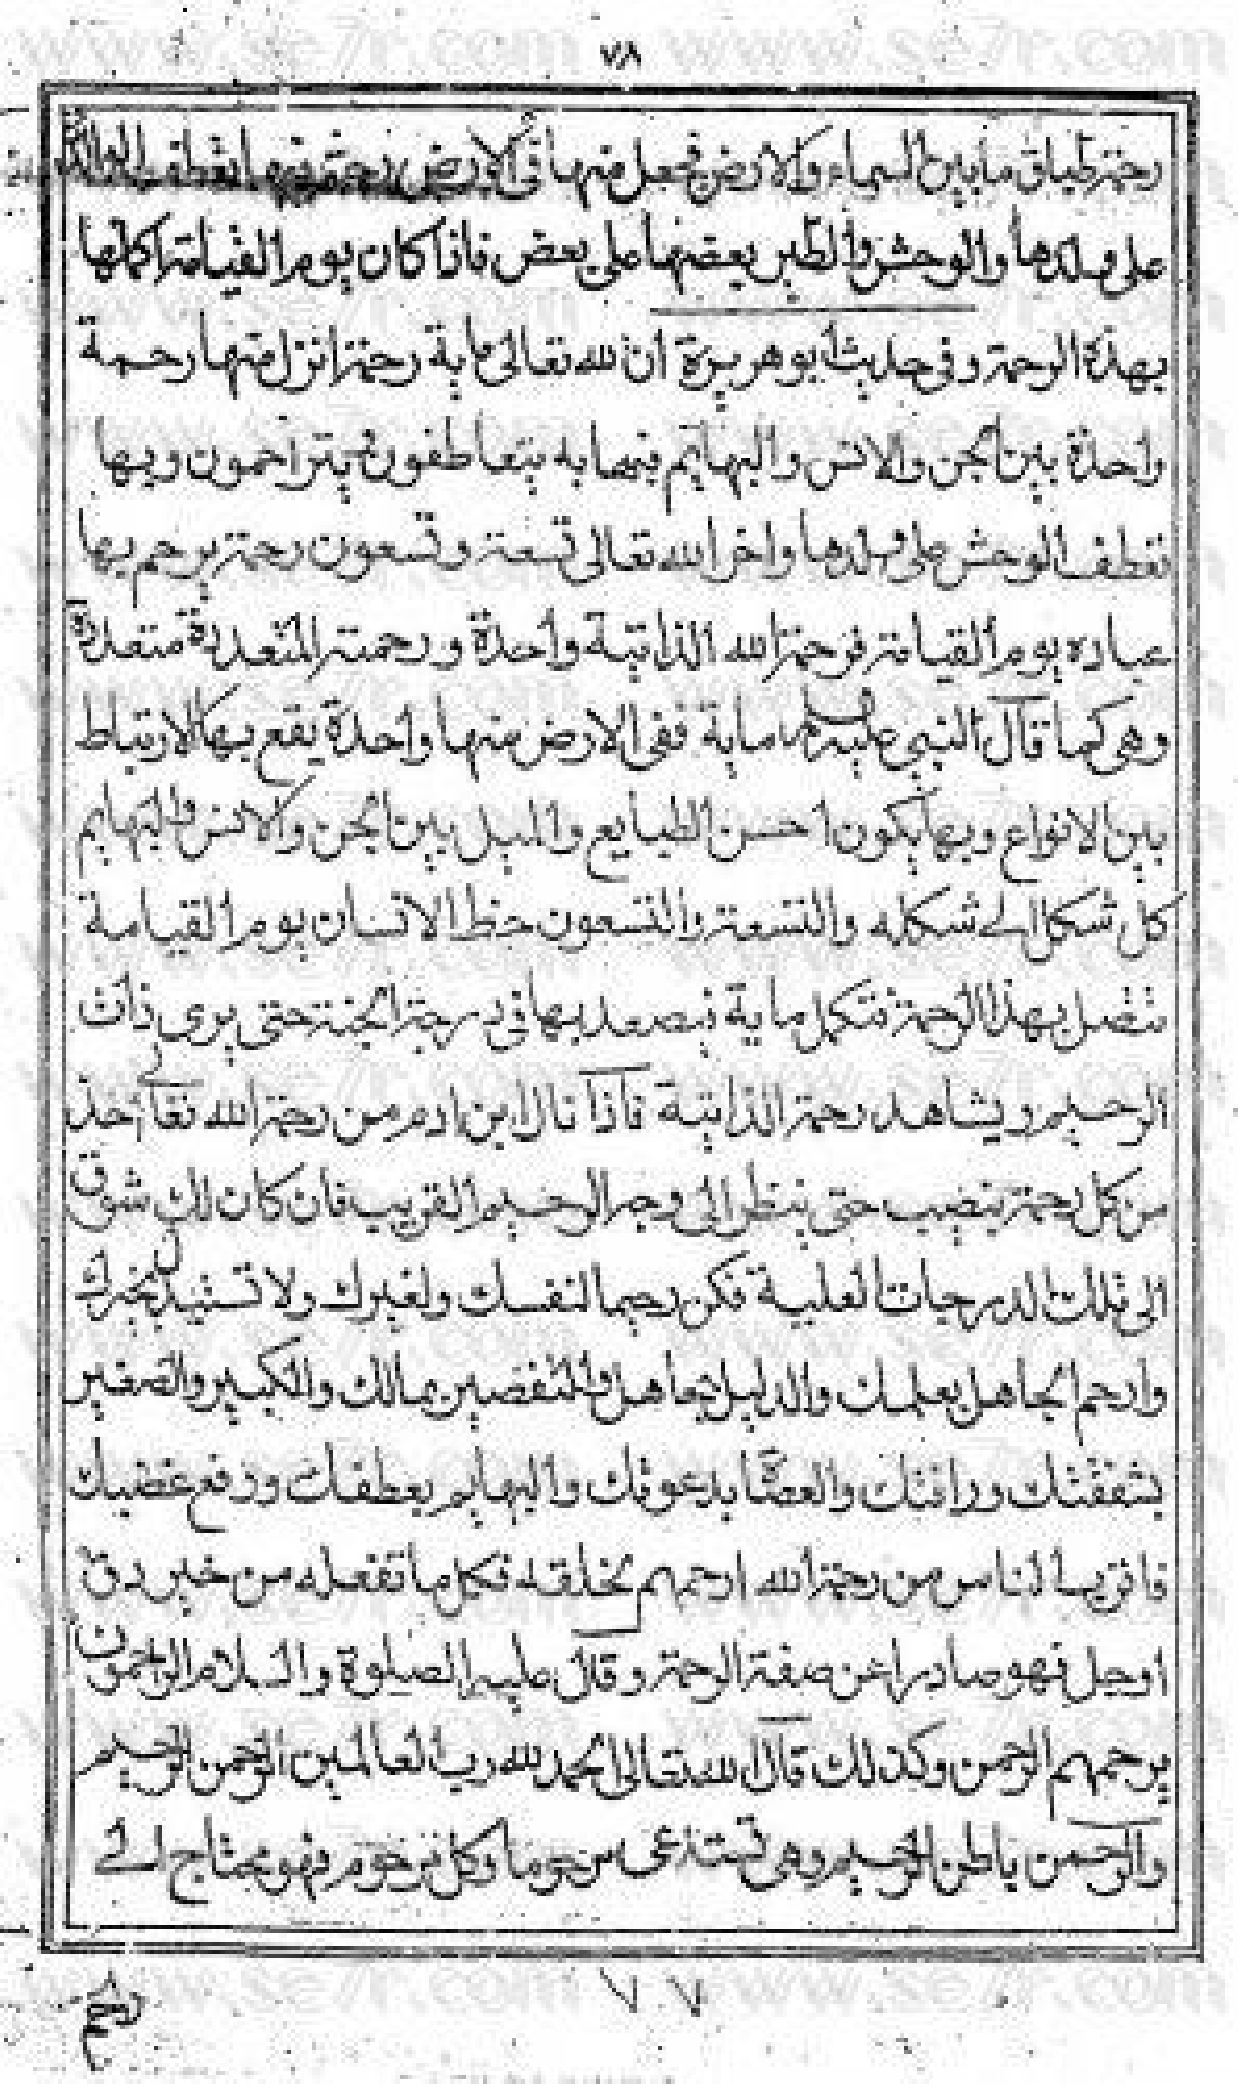 www.se7r.com www.se7r.com
٧٨
رحمة طباق ما بين السماء والارض فجعل منها فى الارض رحمة فبها تعطف الوالدة
على ولدها والوحش والطير بعضها على بعض فاذا كان يوم القيامة اكملها
بهذه الرحمة وفى حديث ابو هريرة ان لله تعالى ماية رحمة انزل منها رحمة
واحدة بين الجن والانس والبهايم فبها به يتعاطفون يتراحمون وبها
تعطف الوحش على ولدها واخر الله تعالى تسعة وتسعون رحمة يرحم بها
عباده يوم القيامة فرحمة الله الذاتية واحدة ورحمته المتعدية متعددة
وهى كما قال النبى عليه ماية ففى الارض منها واحدة يقع بها الارتباط
بين الانواع وبها يكون احسن الطبايع والميل بين الجن والانس والبهايم
كل شكل الى شكله والتسعة والتسعون حظ الانسان يوم القيامة
تتصل بهذا الرحمة فتكمل ماية فيصعد بها فى درجة الجنة حتى يرى ذات
الرحيم ويشاهد رحمة الذاتية فاذا نال ابن ادم من رحمة الله تعالى اخذ
من كل رحمة بنصيب حتى ينظر الى وجه الرحيم القريب فان كان لك شوق
الى تلك الدرجات العلية فكن رحيما لنفسك ولغيرك ولا بخيرك
وارحم الجاهل بعلمك والذليل بجاهك بمالك والكبير والصغير
بشفقتك ورافتك والعصا بدعوتك والبهايم بعطفك ورفع غضبك
فاقرب الناس من رحمة الله ارحمهم بخلقه فكل ما تفعله من خير دق
او جل فهو صادرا عن صفة الرحمة وقال عليه الصلوة والسلام الراحمون
يرحمهم الرحمن وكذلك قال الله تعالى الحمد لله رب العالمين الرحمن الرحيم
والرحمن باطن الرحيم وهى تستدعى مرحوما وكل مرحوم فهو محتاج الى
٧٧